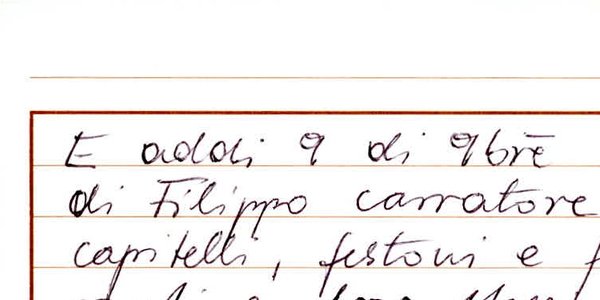 E addi 9 di 9brē
di Filippo carratore
capitelli, festoni e f